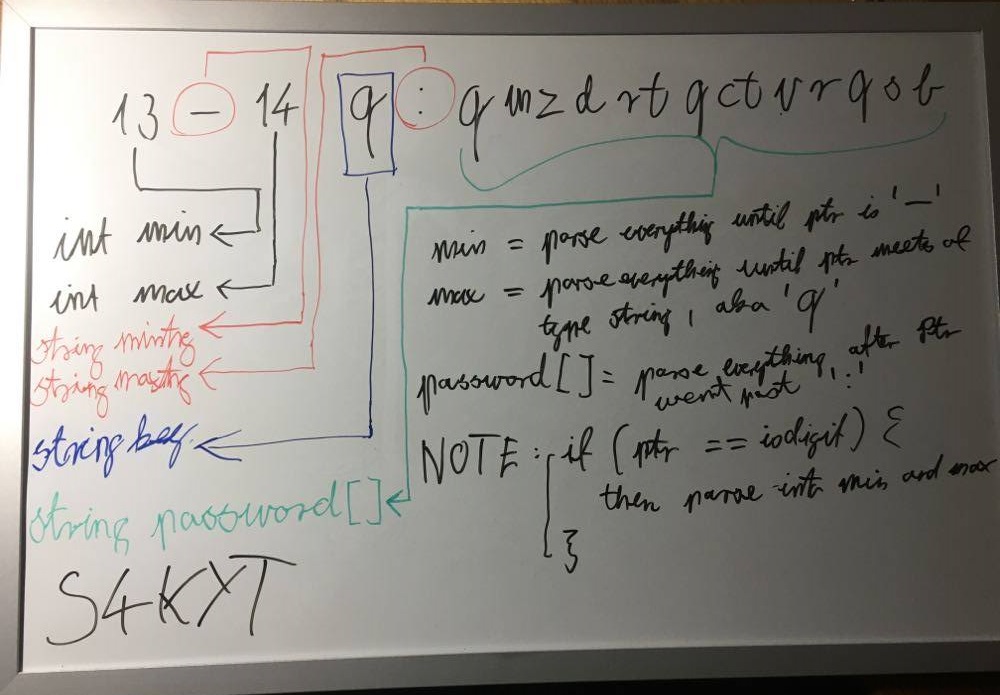 13 - 14 q : qmzdrtqctvrqsb
int min
int max
string
string
string key
string password[]
min = parse everything until ptr is '-'
max = parse everything until ptr meets of
type string, aka 'q'
password[] = parse everything after ptr
went past ':'
NOTE : if (ptr == isdigit) {
then parse int min and max
}
S4KYT